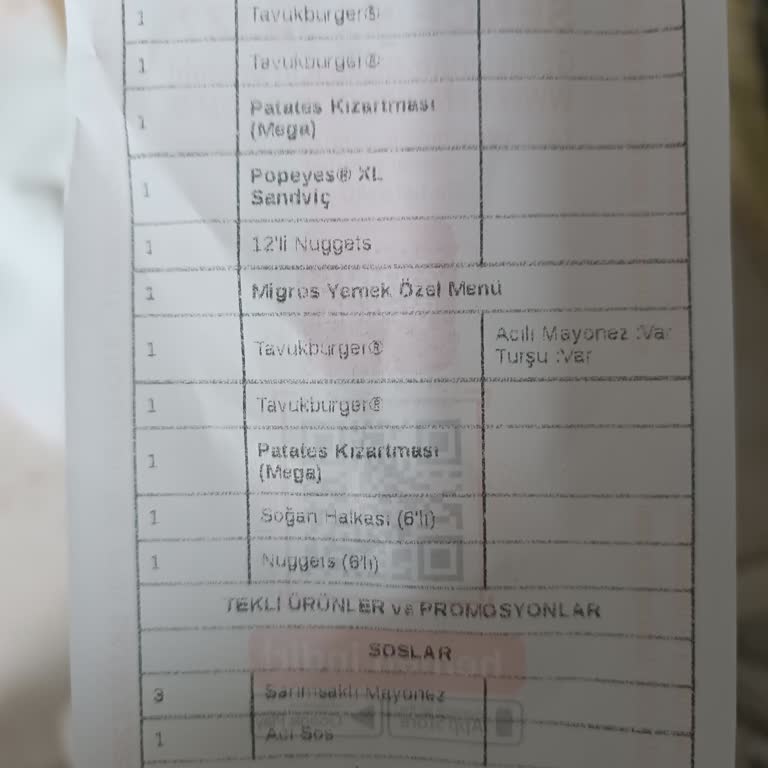 1 Tavukburger®
1 Tavukburger®
1 Patates Kızartması
(Mega)
1 Popeyes® XL
Sandviç
1 12'li Nuggets
1 Migros Yemek Özel Menü
1 Tavukburger® Acılı Mayonez :Var
Turşu :Var
1 Tavukburger®
1 Patates Kızartması
(Mega)
1 Soğan Halkası (6'lı)
1 Nuggets (6'lı)
TEKLİ ÜRÜNLER ve PROMOSYONLAR
SOSLAR
3 Sarımsaklı Mayonez
1 Acı Sos